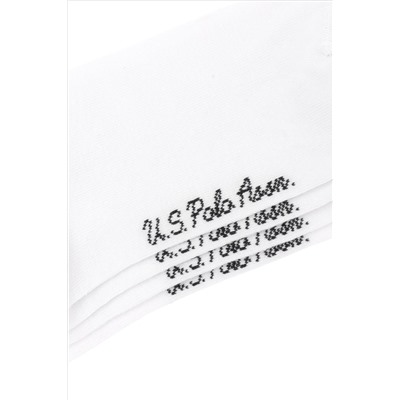 U.S. Polo Assn.
U.S. Polo Assn.
U.S. Polo Assn.
U.S. Polo Assn.